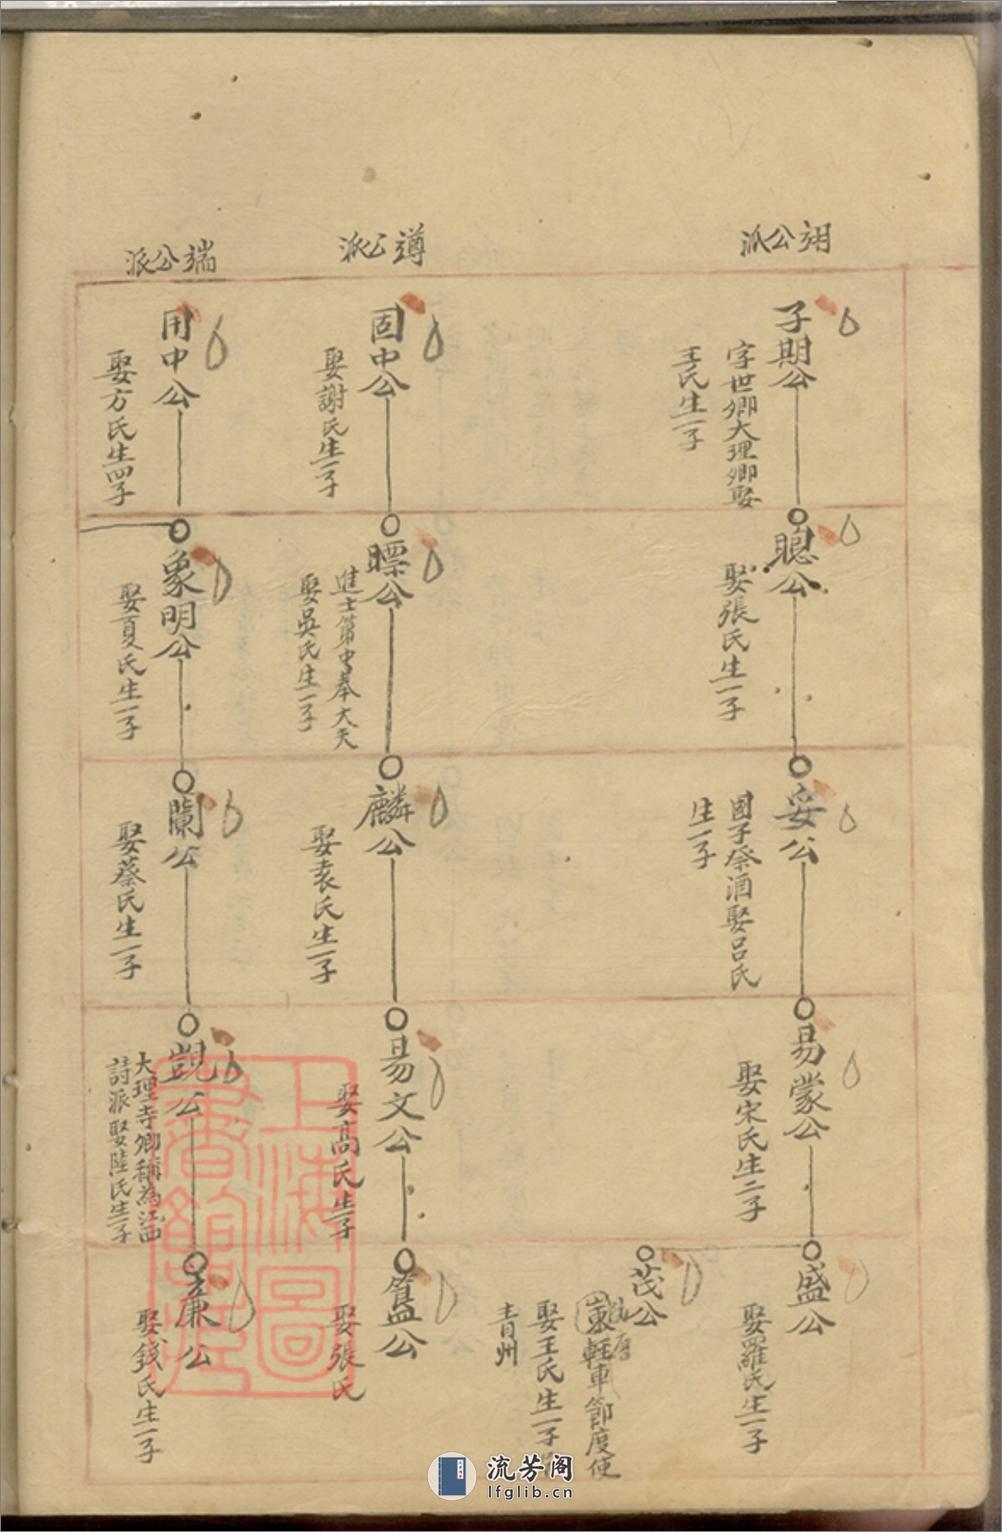 翊公派
子期公
字世卿大理卿娶
王氏生一子
聰公
娶張氏生一子
妥公
國子祭酒娶呂氏
生一子
易蒙公
娶宋氏生二子
盛公
娶羅氏生一子
茂公
軽車節度使
娶王氏生一子
青州
遵公派
固中公
娶謝氏生一子
瞟公
進士第中奉大天
娶吳氏生一子
麟公
娶袁氏生一子
易文公
娶高氏生一子
簋公
娶張氏
端公派
用中公
娶方氏生四子
象明公
娶夏氏生一子
蘭公
娶蔡氏生一子
凱公
大理寺卿稱為江西
詩派娶陸氏生一子
廉公
娶錢氏生一子
上海圖
書館藏
流芳阁
lfglib.cn